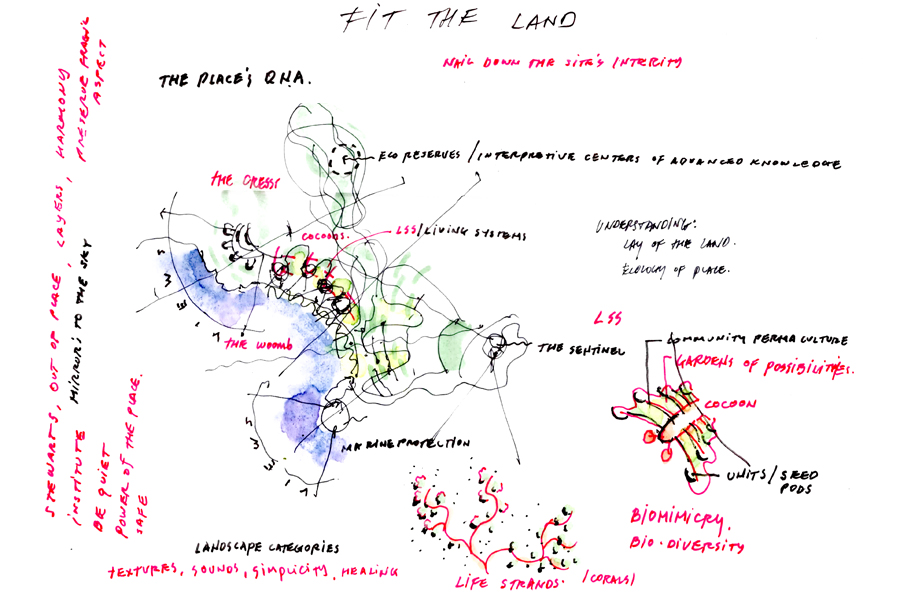 FIT THE LAND
NAIL DOWN THE SITE'S INTERITY
THE PLACE'S DNA.
ECO RESERVES / INTERPRETIVE CENTERS OF ADVANCED KNOWLEDGE
THE CRESS
COCOONS.
LSS/LIVING SYSTEMS
UNDERSTANDING:
LAY OF THE LAND.
ECOLOGY OF PLACE.
THE WOOMB
THE SENTINEL
MARINE PROTECTION
LSS
COMMUNITY PERMA CULTURE
GARDENS OF POSSIBILITIES.
COCOON
UNITS/SEED
PODS
BIOMIMICRY.
BIO-DIVERSITY
LANDSCAPE CATEGORIES
TEXTURES, SOUNDS, SIMPLICITY, HEALING
LIFE STRANDS. /CORALS/
STEWARTS, OUT OF PLACE, LAYERS, HARMONY
INSTITUTE MIRROR: TO THE SKY PRESERVE FRAGIL
ASPECT
BE QUIET
POWER OF THE PLACE.
SAFE